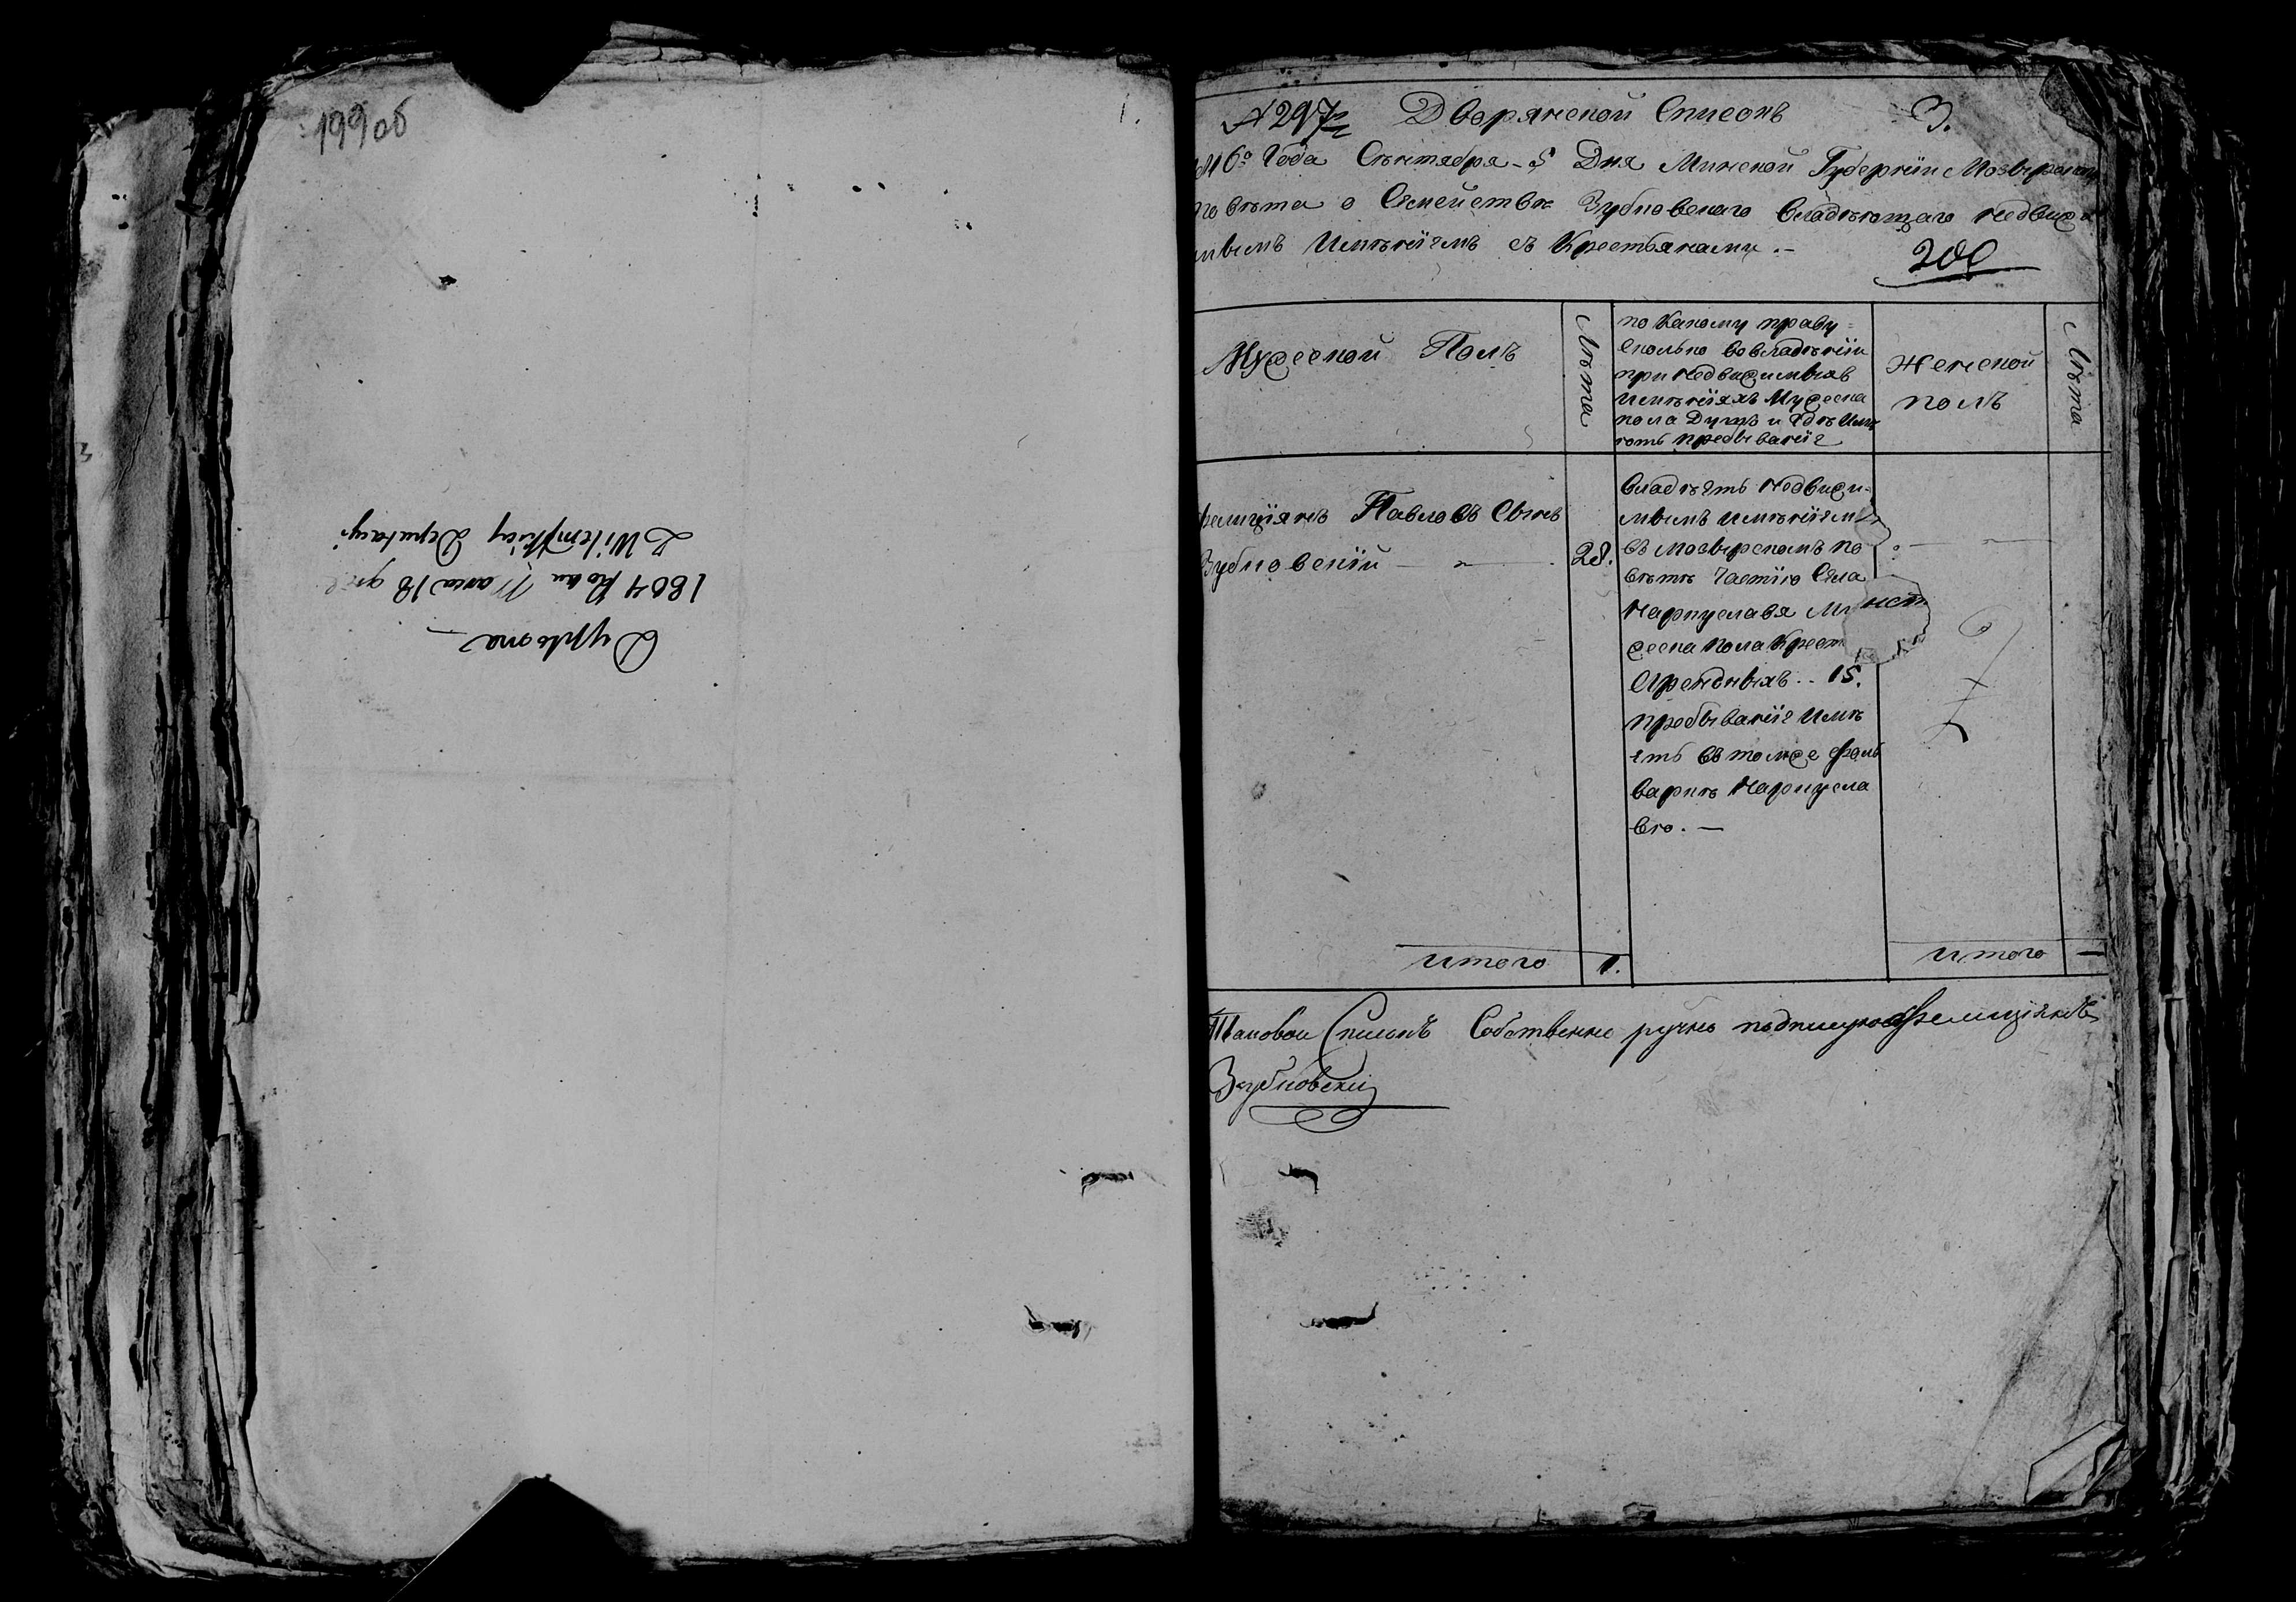 199об
1.
Dyploma
1804 Roku Marca 18
Z Wileńskiey Deputacyi
№ 297 Дворянской Списокъ 3.
6го Года Сѣнтября 5 Дня Минской Губерніи Мозырскаго
повѣта о Сѣмействѣ Зубковскаго Владѣющаго недвижи
мымъ Имѣніемъ съ Крестьянами.-
200
Мужеской Полъ
Лѣта
по Какому праву
Сколько во владѣніи
при Недвижимыхъ
Имѣніяхъ Мужеска
пола Душъ и Гдѣ Имѣ
ютъ пребываніе
Женской
полъ
Лѣта
Фелиціянъ Павловъ Сынъ
Зубковскій — 28.
Владѣетъ Недвижи-
мымъ Имѣніемъ
въ Мозырскомъ по
вѣтѣ Частію Села
Нарцуславя
жеска пола Крест
Арендныхъ.. 15.
пребываніе Имѣ
етъ въ томже фоль
варкѣ Нарцусла
вю. —
итого 1.
итого —
Таковои Списокъ Собственно ручно подпишуюсь Фелиціянъ
Зубковскій